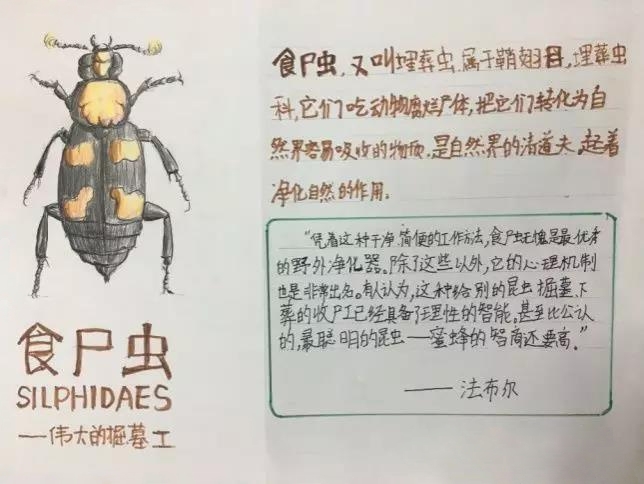 食尸虫
SILPHIDAES
——伟大的掘墓工
食尸虫,又叫埋葬虫.属于鞘翅目,埋葬虫
科,它们吃动物腐烂尸体,把它们转化为自
然界容易吸收的物质.是自然界的清道夫,起着
净化自然的作用.
"凭着这种干净.简便的工作方法,食尸虫无愧是最优秀
的野外净化器。除了这些以外,它的心理机制
也是非常出名。有人认为,这种给别的昆虫掘墓、下
葬的收尸工已经具备了理性的智能。甚至比公认
的,最聪明的昆虫——蜜蜂的智商还要高。"
——法布尔